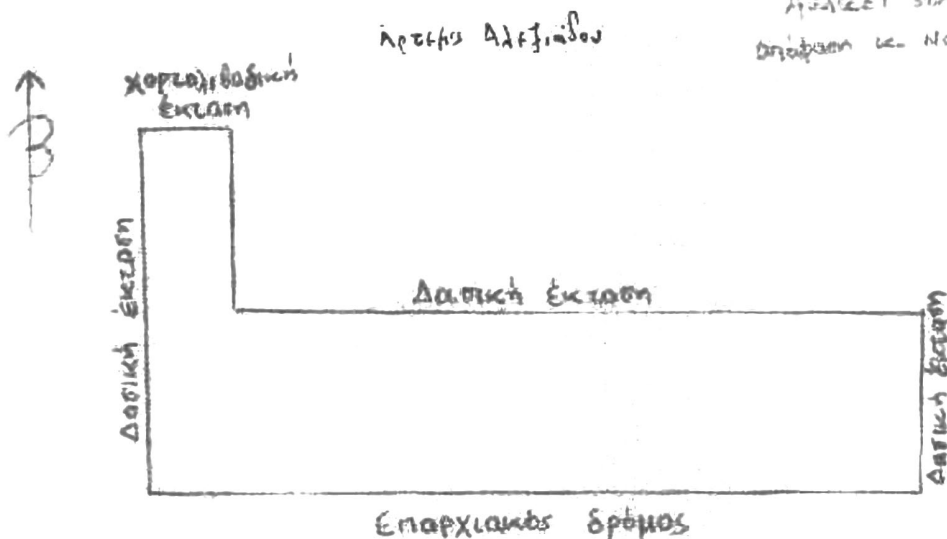 Άρτεμις Αλεξιάδου
απόφαση κ.
Β
χορτολιβαδική
έκταση
Δασική έκταση
Δασική έκταση
Δασική έκταση
Επαρχιακός δρόμος